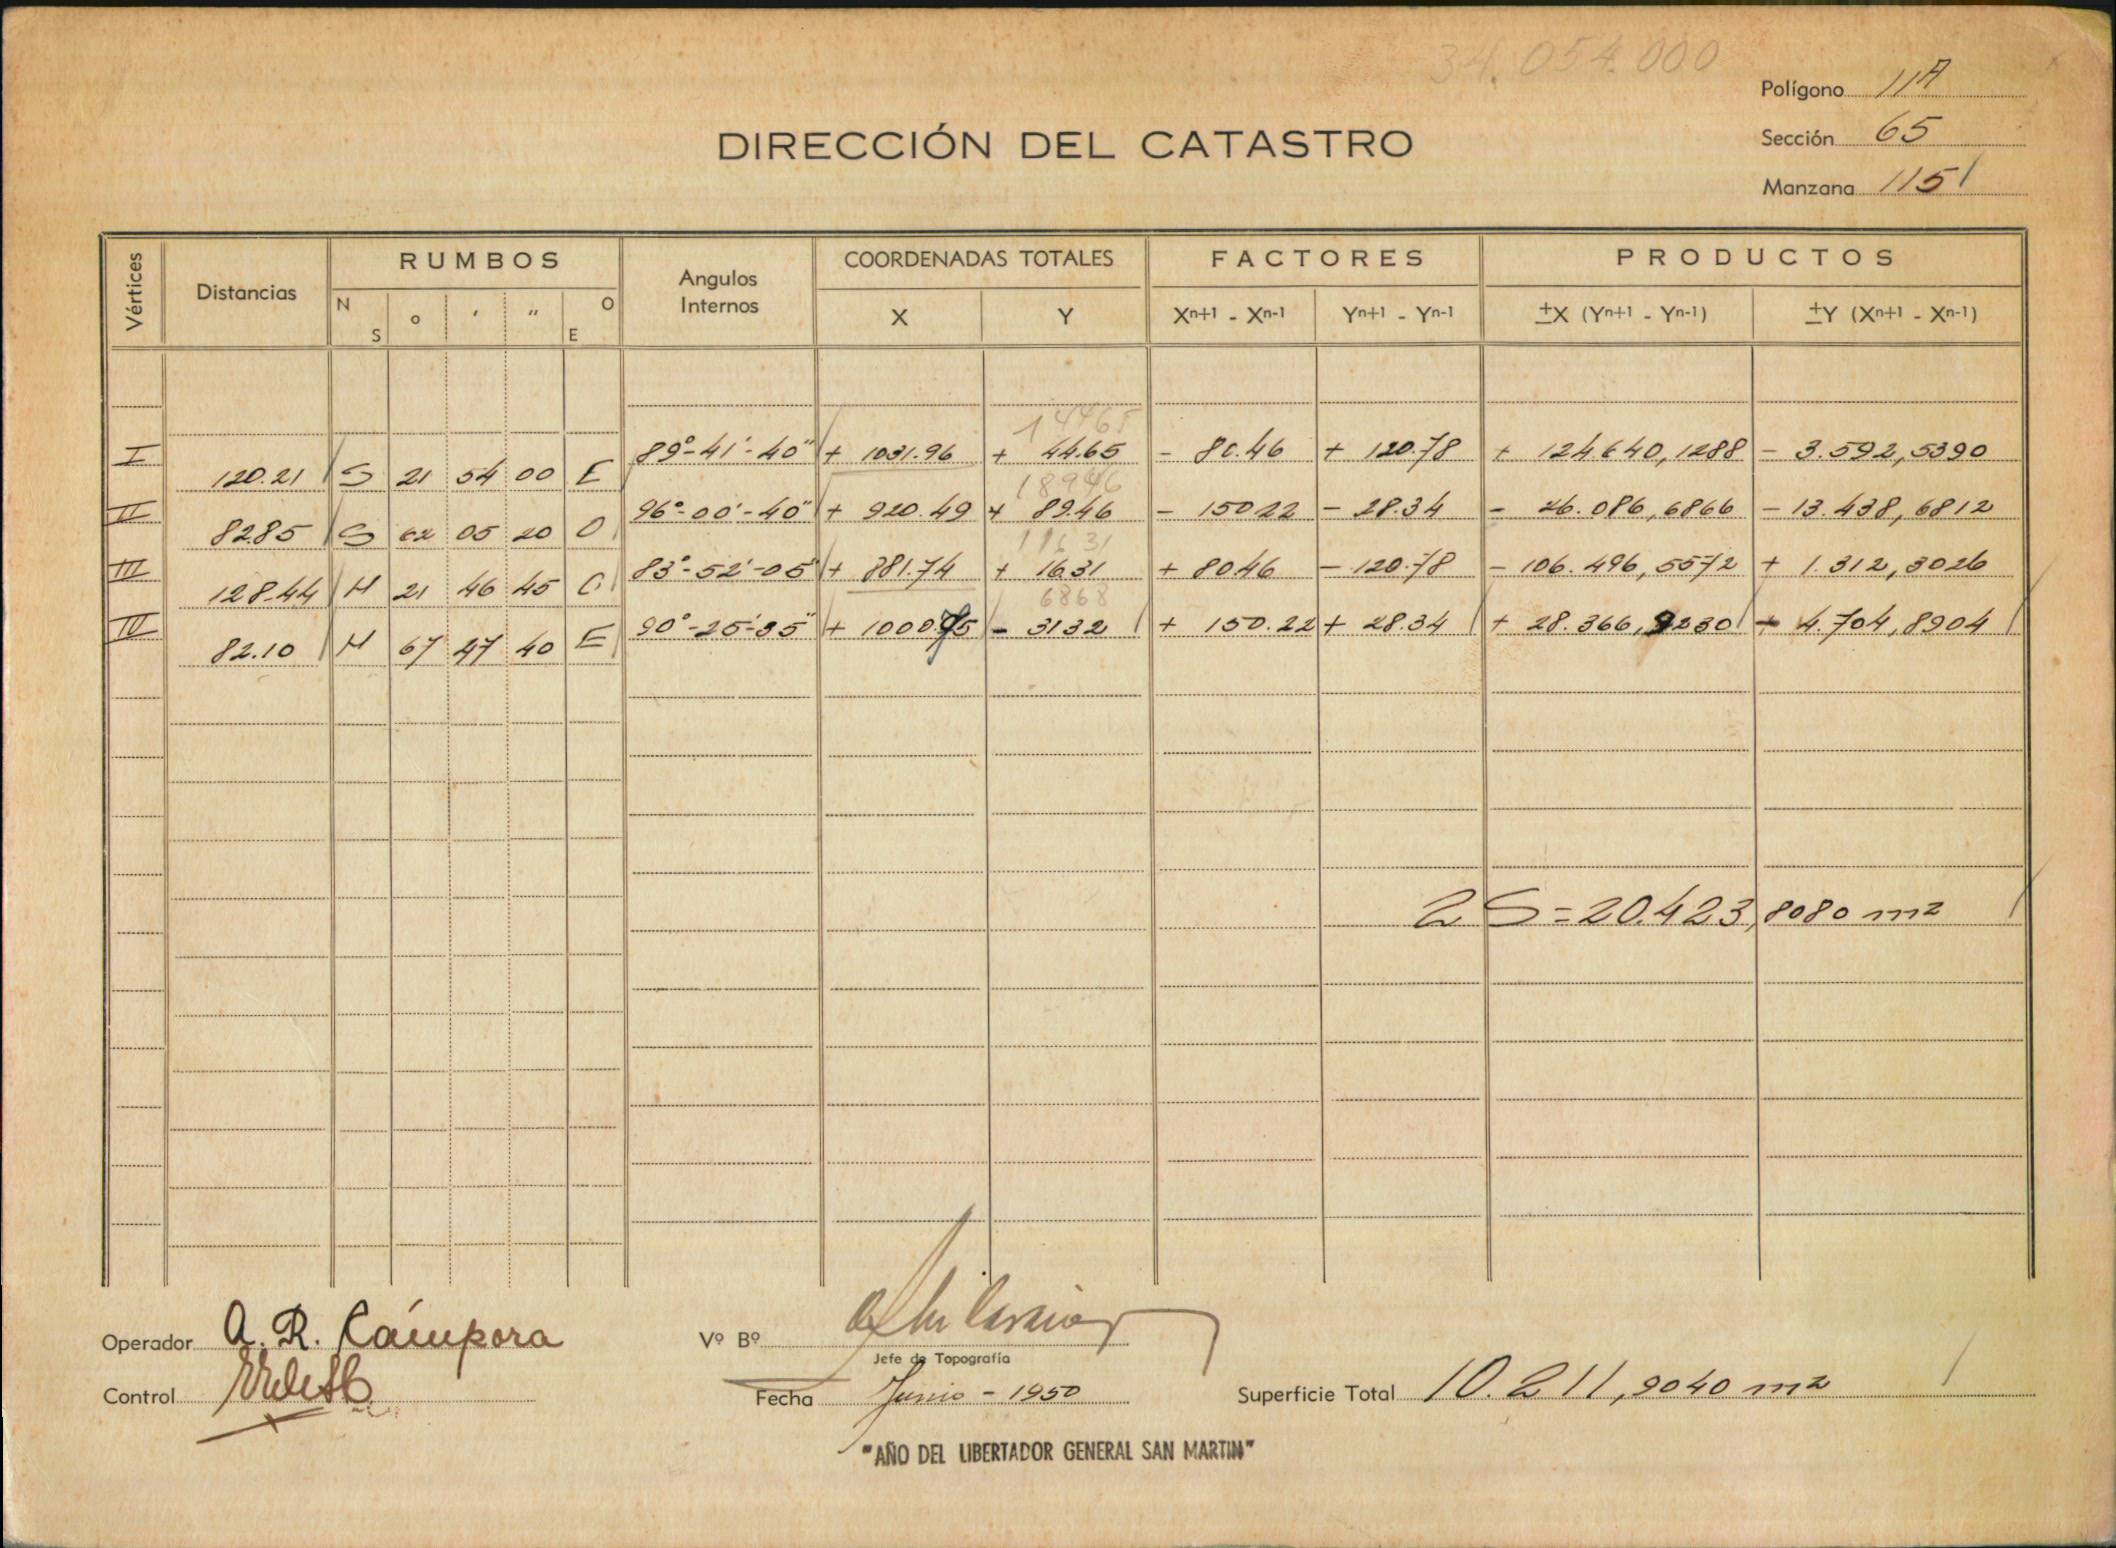 34.054.000
Polígono 11A
Sección 65
Manzana 115
DIRECCIÓN DEL CATASTRO
Vértices Distancias RUMBOS Angulos Internos COORDENADAS TOTALES FACTORES PRODUCTOS
N S o ' " O E X Y Xn+1 - Xn-1 Yn+1 - Yn-1 ±X (Yn+1 - Yn-1) ±Y (Xn+1 - Xn-1)
14465
I 89°-41'-40" + 1031.96 + 44.65 - 80.46 + 120.78 + 124640,1288 - 3.592,5390
120.21 S 21 54 00 E
18946
II 96°-00'-40" + 920.49 + 89.46 - 150.22 - 28.34 - 26.086,6866 - 13.438,6812
82.85 S 62 05 20 O
11631
III 83°-52'-05" + 881.74 + 16.31 + 80.46 - 120.78 - 106.496,5572 + 1.312,3026
128.44 N 21 46 45 O
6868
IV 90°-25'-35" + 1000.95 - 31.32 + 150.22 + 28.34 + 28.366,9230 - 4.704,8904
82.10 N 67 47 40 E
2 S = 20.423,8080 m2
Operador A. R. Cámpora
Vº Bº
Jefe de Topografía
Control
Fecha Junio - 1950
Superficie Total 10.211,9040 m2
"AÑO DEL LIBERTADOR GENERAL SAN MARTIN"